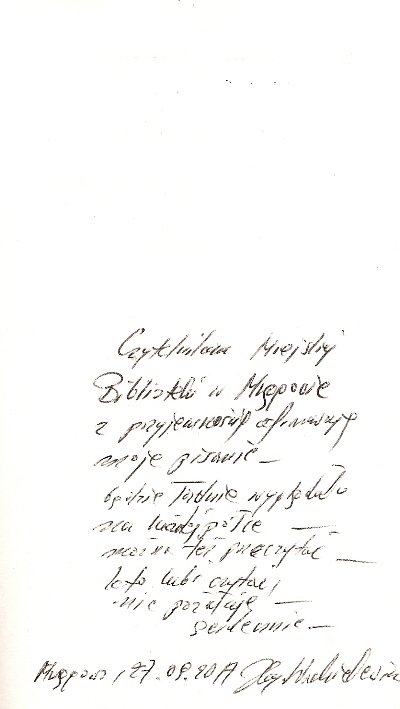 Czytelnikom Miejskiej
Biblioteki w Mszczonowie
z przyjemnością ofiarowuję
moje pisanie –
będzie ładnie wyglądało
na każdej półce –
można też przeczytać –
kto lubi czytać,
nie pożałuje –
serdecznie –
27.09.2017